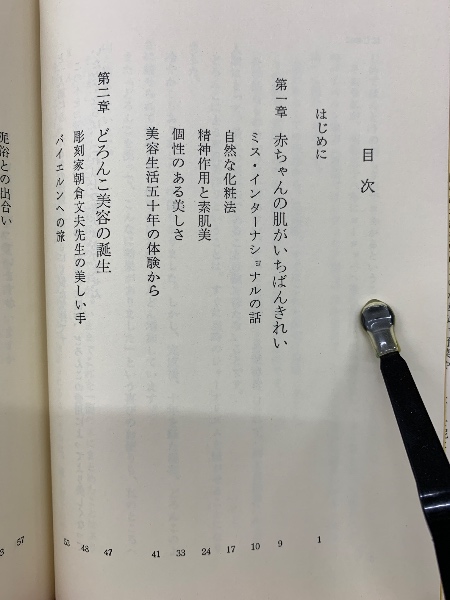 目次
はじめに 1
第一章 赤ちゃんの肌がいちばんきれい 9
ミス・インターナショナルの話 10
自然な化粧法 17
精神作用と素肌美 24
個性のある美しさ 33
美容生活五十年の体験から 41
第二章 どろんこ美容の誕生 47
彫刻家朝倉文夫先生の美しい手 48
バイエルンへの旅 53
泥浴との出合い 57